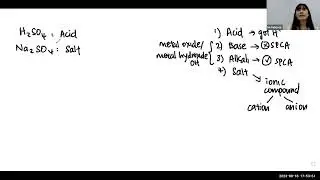 H2SO4 : Acid
Na2SO4 : Salt
1) Acid → got H+
metal oxide/
metal hydroxide
OH
2) Base → ⓧ SPCA
3) Alkali → ✓ SPCA
4) Salt
↳ ionic
compound
cation
anion